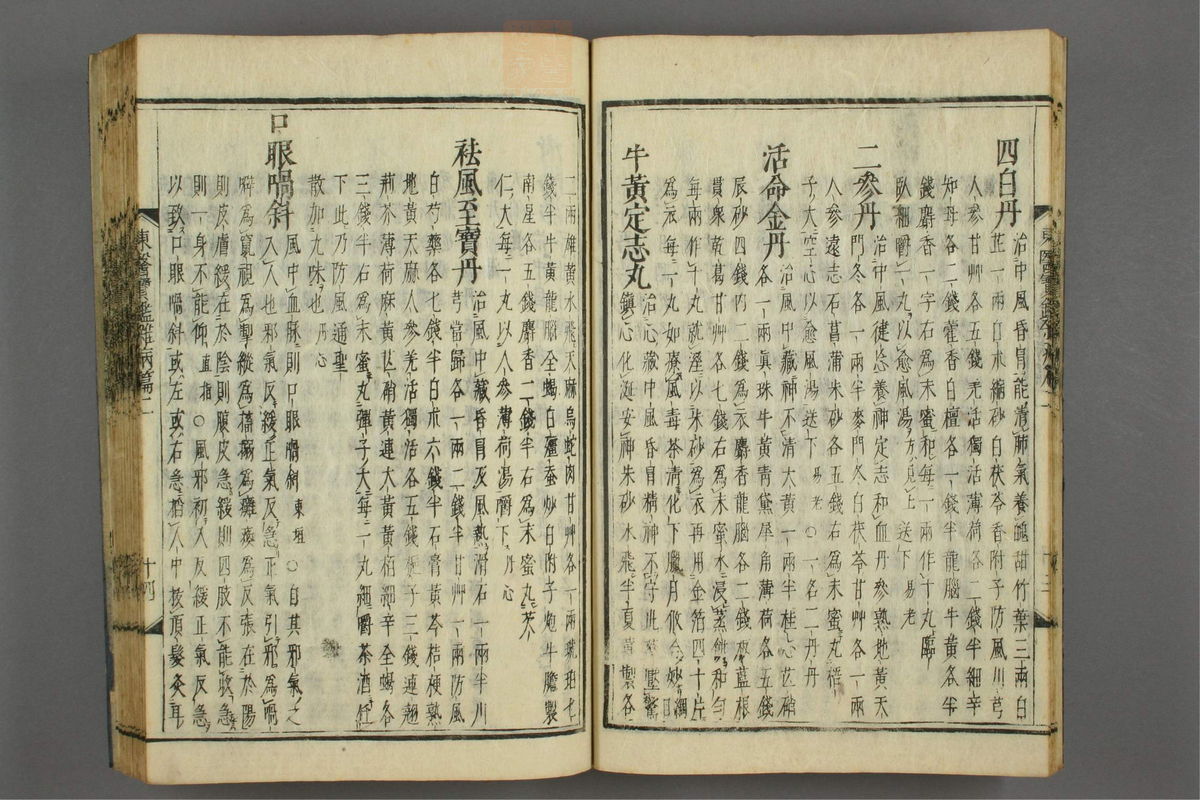 四白丹
治中風昏冒能清肺氣養魄甜竹葉三兩白
芷一兩白朮縮砂白茯苓香附子防風川芎
人參甘艸各五錢羌活獨活薄荷各二錢半細辛
知母各二錢藿香白檀各一錢半龍腦牛黃各半
錢麝香一字右爲末蜜和每一兩作十丸臨
臥細嚼一丸以愈風湯方見上送下易老
二參丹
治中風健忘養神定志和血丹參熟地黃天
門冬各一兩半麥門冬白茯苓甘艸各一兩
人參遠志石菖蒲朱砂各五錢右爲末蜜丸梧
子大空心以愈風湯送下易老○一名二丹丹
活命金丹
治風中藏神不清大黃一兩半桂心芒硝
各一兩眞珠牛黃青黛犀角薄荷各五錢
辰砂四錢內二錢爲衣麝香龍腦各二錢板藍根
貫衆乾葛甘艸各七錢右爲末蜜水浸蒸餠和勻
每兩作十丸就溼以朱砂爲衣再用金箔四十片
爲衣每一丸如療風毒茶淸化下臘月修合妙
牛黃定志丸
治心藏中風昏冒精神不守此
鎭心化涎安神朱砂水飛半夏薑製各
二兩雄黃水飛天麻烏蛇肉甘艸各一兩琥珀七
錢半牛黃龍腦全蝎白殭蚕炒白附子炮牛膽製
南星各五錢麝香二錢半右爲末蜜丸芡
仁大每一丸以人參薄荷湯嚼下丹心
祛風至寶丹
治風中藏昏冒及風熱滑石一兩半川
芎當歸各一兩二錢半甘艸一兩防風
白芍藥各七錢半白朮六錢半石膏黃芩桔梗熟
地黃天麻人參羌活獨活各五錢梔子三錢連翹
荊芥薄荷麻黃芒硝黃連大黃黃栢細辛全蝎各
三錢半右爲末蜜丸彈子大每二丸細嚼茶酒任
下此乃防風通聖
散加九味也丹心
口眼喎斜
風中血脉則口眼喎斜東垣○自其邪氣之
入人也邪氣反緩正氣反急正氣引邪爲喎
僻爲竄視爲掣縱爲搐搦爲癱瘓爲反張在於陽
則皮膚緩在於陰則腹皮急緩則四肢不能收急
則一身不能仰直指○風邪初入反緩正氣反急
以致口眼喎斜或左或右急掐人中拔頂髮灸耳
東醫寶鑑雜病篇二
十四